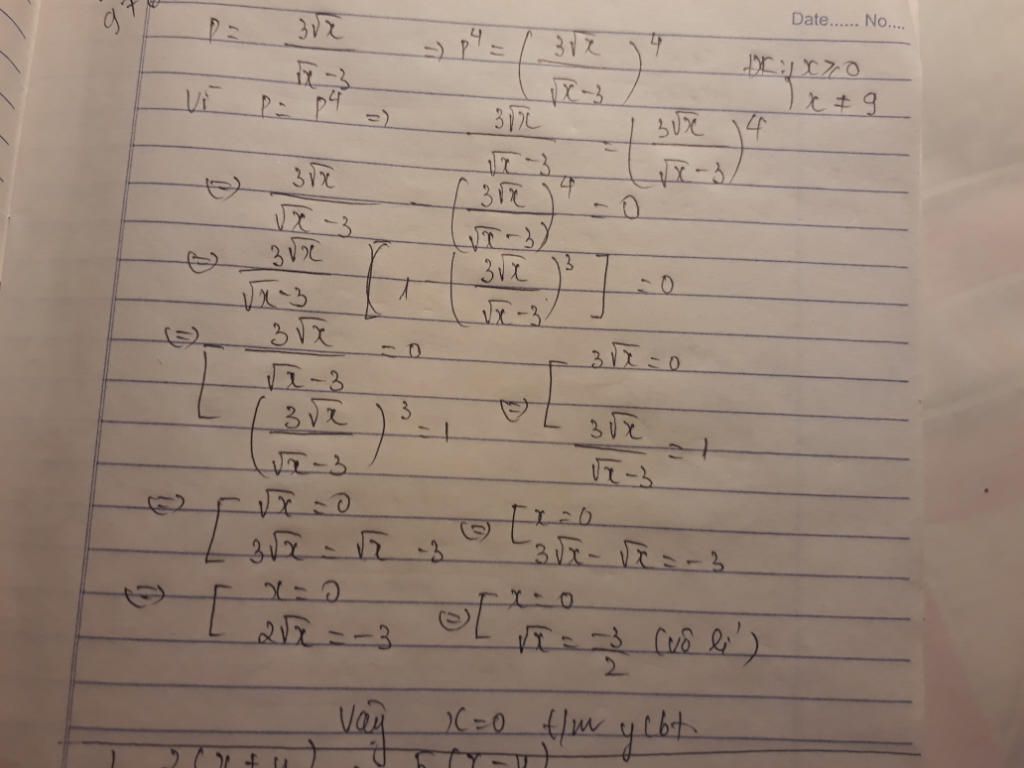 Date...... No....
97
P = 3√x / (√x - 3) => P⁴ = (3√x / (√x - 3))⁴ ĐK: { x ≥ 0
x ≠ 9
Vì P = P⁴ => 3√x / (√x - 3) = (3√x / (√x - 3))⁴
<=> 3√x / (√x - 3) - (3√x / (√x - 3))⁴ = 0
<=> 3√x / (√x - 3) [1 - (3√x / (√x - 3))³] = 0
<=> [ 3√x / (√x - 3) = 0 <=> [ 3√x = 0
(3√x / (√x - 3))³ = 1 3√x / (√x - 3) = 1
<=> [ √x = 0 <=> [ x = 0
3√x = √x - 3 3√x - √x = -3
<=> [ x = 0 <=> [ x = 0
2√x = -3 √x = -3/2 (vô lí)
Vậy x = 0 t/m ycbt